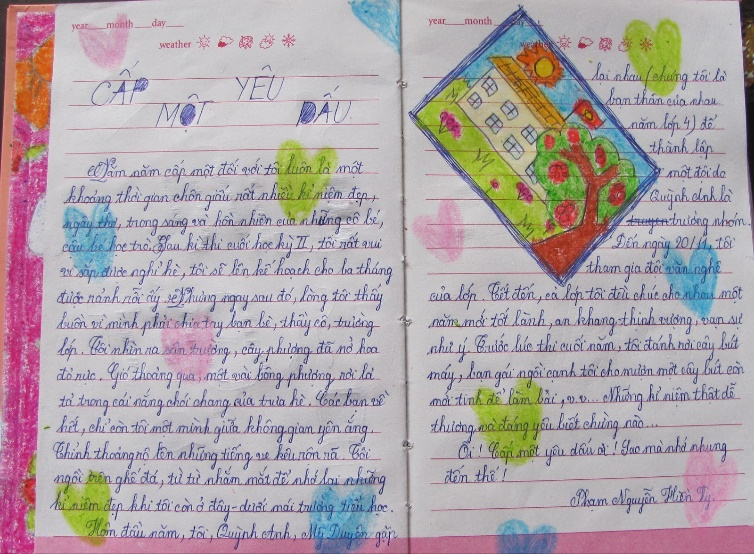 year month day
weather
CẤP MỘT YÊU DẤU
Năm năm cấp một đối với tôi luôn là một
khoảng thời gian chôn giấu rất nhiều kỉ niệm đẹp,
ngây thơ, trong sáng và hồn nhiên của những cô bé,
cậu bé học trò. Sau kì thi cuối học kỳ II, tôi rất vui
vì sắp được nghỉ hè, tôi sẽ lên kế hoạch cho ba tháng
được rảnh rỗi ấy. Nhưng ngay sau đó, lòng tôi thấy
buồn vì mình phải chia tay bạn bè, thầy cô, trường
lớp. Tôi nhìn ra sân trường, cây phượng đã nở hoa
đỏ rực. Gió thoảng qua, một vài bông phượng rơi lả
tả trong cái nắng chói chang của trưa hè. Các bạn về
hết, chỉ còn tôi một mình giữa không gian yên ắng.
Thỉnh thoảng rộ lên những tiếng ve kêu rôm rả. Tôi
ngồi trên ghế đá, từ từ nhắm mắt để nhớ lại những
kỉ niệm đẹp khi tôi còn ở đây - dưới mái trường tiểu học.
Hôm đầu năm, tôi, Quỳnh Anh, Mỹ Duyên gặp
year month
weather
lại nhau (chúng tôi là
bạn thân của nhau
năm lớp 4) để
thành lập
một đội do
Quỳnh Anh là
trưởng nhóm.
Đến ngày 20/11, tôi
tham gia đội văn nghệ
của lớp. Tết đến, cả lớp tôi đều chúc cho nhau một
năm mới tốt lành, an khang thịnh vượng, vạn sự
như ý. Trước lúc thi cuối năm, tôi đánh rơi cây bút
máy, bạn gái ngồi cạnh tôi cho mượn một cây bút còn
mới tinh để làm bài, v.v... Những kỉ niệm thật dễ
thương và đáng yêu biết chừng nào...
Ôi! Cấp một yêu dấu ơi! Sao mà nhớ nhung
đến thế!
Phạm Nguyễn Hiền Vy.